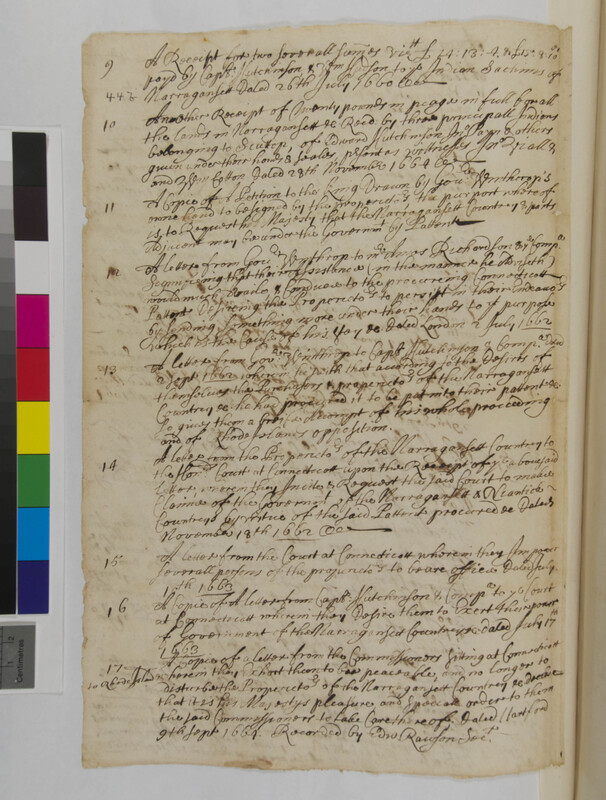 9 A Receipt for two severall summes vizt £ 14:13:4 &
payd by Capt Hutchinson & Wm Hudson to ye Indian Sachims of
443 Narragansett Dated 26th July 1660 &ca
10 Another Receipt of Twenty pounds in peage in full for all
the lands in Narragansett &c Recd by three principall Indians
belonging to of Edward Hutchinson, & others
given under their hands & seales, present as witnesses Jno Viall &
and Wm Cotton Dated 28th November 1664 &ca
11 A Copie of A Petition to the King Drawn by Govr Winthrop's
owne hand to be signed by the Propriet the purport whereof
is to Request his Majesty that the Narragansett Countrey & parts
adjacent may be under the Government by Patent
12 A letter from Govr Winthrop to mr Amos Richardson & Compa
that their assistance (in the manner he
would & Conduce to the procuring Connecticott
Patent Desireing the Propriet to persist in their Endeavors
by sending something more under their hands to yt purpose
which is the this Day &c Dated London 2 July 1662
13 A letter from Govr Winthrop to Capt Hutchinson & Compa Dated
2 Sept 1662 wherein he sayth that according to the desires of
themselves the Purchasers & propriet of the Narragansett
Countrey &c he had procured it to be put into their patent &c
& gives them a of his whole proceeding
and of Rhode Islands opposition.
14 A letter from the Propriet of the Narragansett Countrey to
the Honrd Court at Connecticott upon the Receipt of ye abovesaid
letter, wherein they & Request the said Court to make
Claime of the Government of the Narragansett & Niantick
Countreys by virtue of the said Patent procured &c Dated
November 18th 1662 &ca
15 A letter from the Court at Connecticott wherein they Impower
severall persons of the propriet to beare office Dated July
1663
16 A Copie of A letter from Capt Hutchinson & Compa to ye Court
at Connecticott wherein they Desire them to Exert their power
of Government of the Narragansett Countrey &c dated July 17th
1663
17 A Copie of a letter from the Commissioners sitting at Connecticott
to Rhode Island wherein they Exhort them to bee peaceable, and no longer to
disturbe the Propriet of the Narragansett Countrey & declare
that it is his Majestys pleasure and speciall order to them
the said Commissioners to take Care thereof. Dated Hartford
9th Sept 1664. Recorded by Edw Rawson Secty